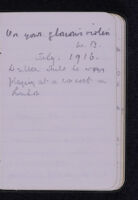 On your glorious violin
L. B.
July. 1916.
while he was
playing at a concert in